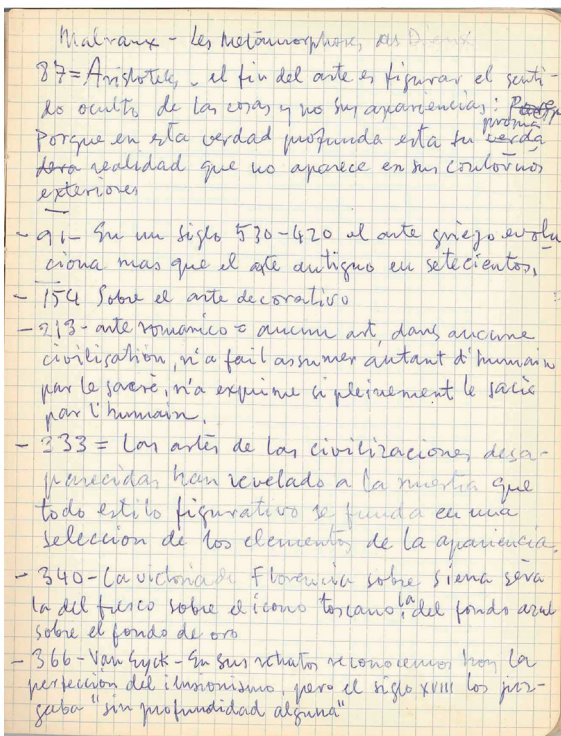 Malraux - Les Métamorphoses des Dieux
87 = Aristoteles - el fin del arte es figurar el senti-
do oculto de las cosas y no sus apariencias:
Porque en esta verdad profunda esta su propia verda
dera realidad que no aparece en sus contornos
exteriores
- 91 - En un siglo 530-420 el arte griego evolu
ciona mas que el arte antiguo en setecientos.
- 154 Sobre el arte decorativo
- 213 - arte romanico = aucun art, dans aucune
civilisation, n'a fait assumer autant d'humain
par le sacré, n'a exprimé si pleinement le sacré
par l'humain.
- 333 = Las artes de las civilizaciones desa-
parecidas han revelado a la nuestra que
todo estilo figurativo se funda en una
selección de los elementos de la apariencia.
- 340 - La victoria de Florencia sobre Siena será
la del fresco sobre el icono toscano, la del fondo azul
sobre el fondo de oro
- 366 - Van Eyck - En sus retratos reconocemos hoy la
perfección del ilusionismo, pero el siglo XVIII los juz-
gaba "sin profundidad alguna"